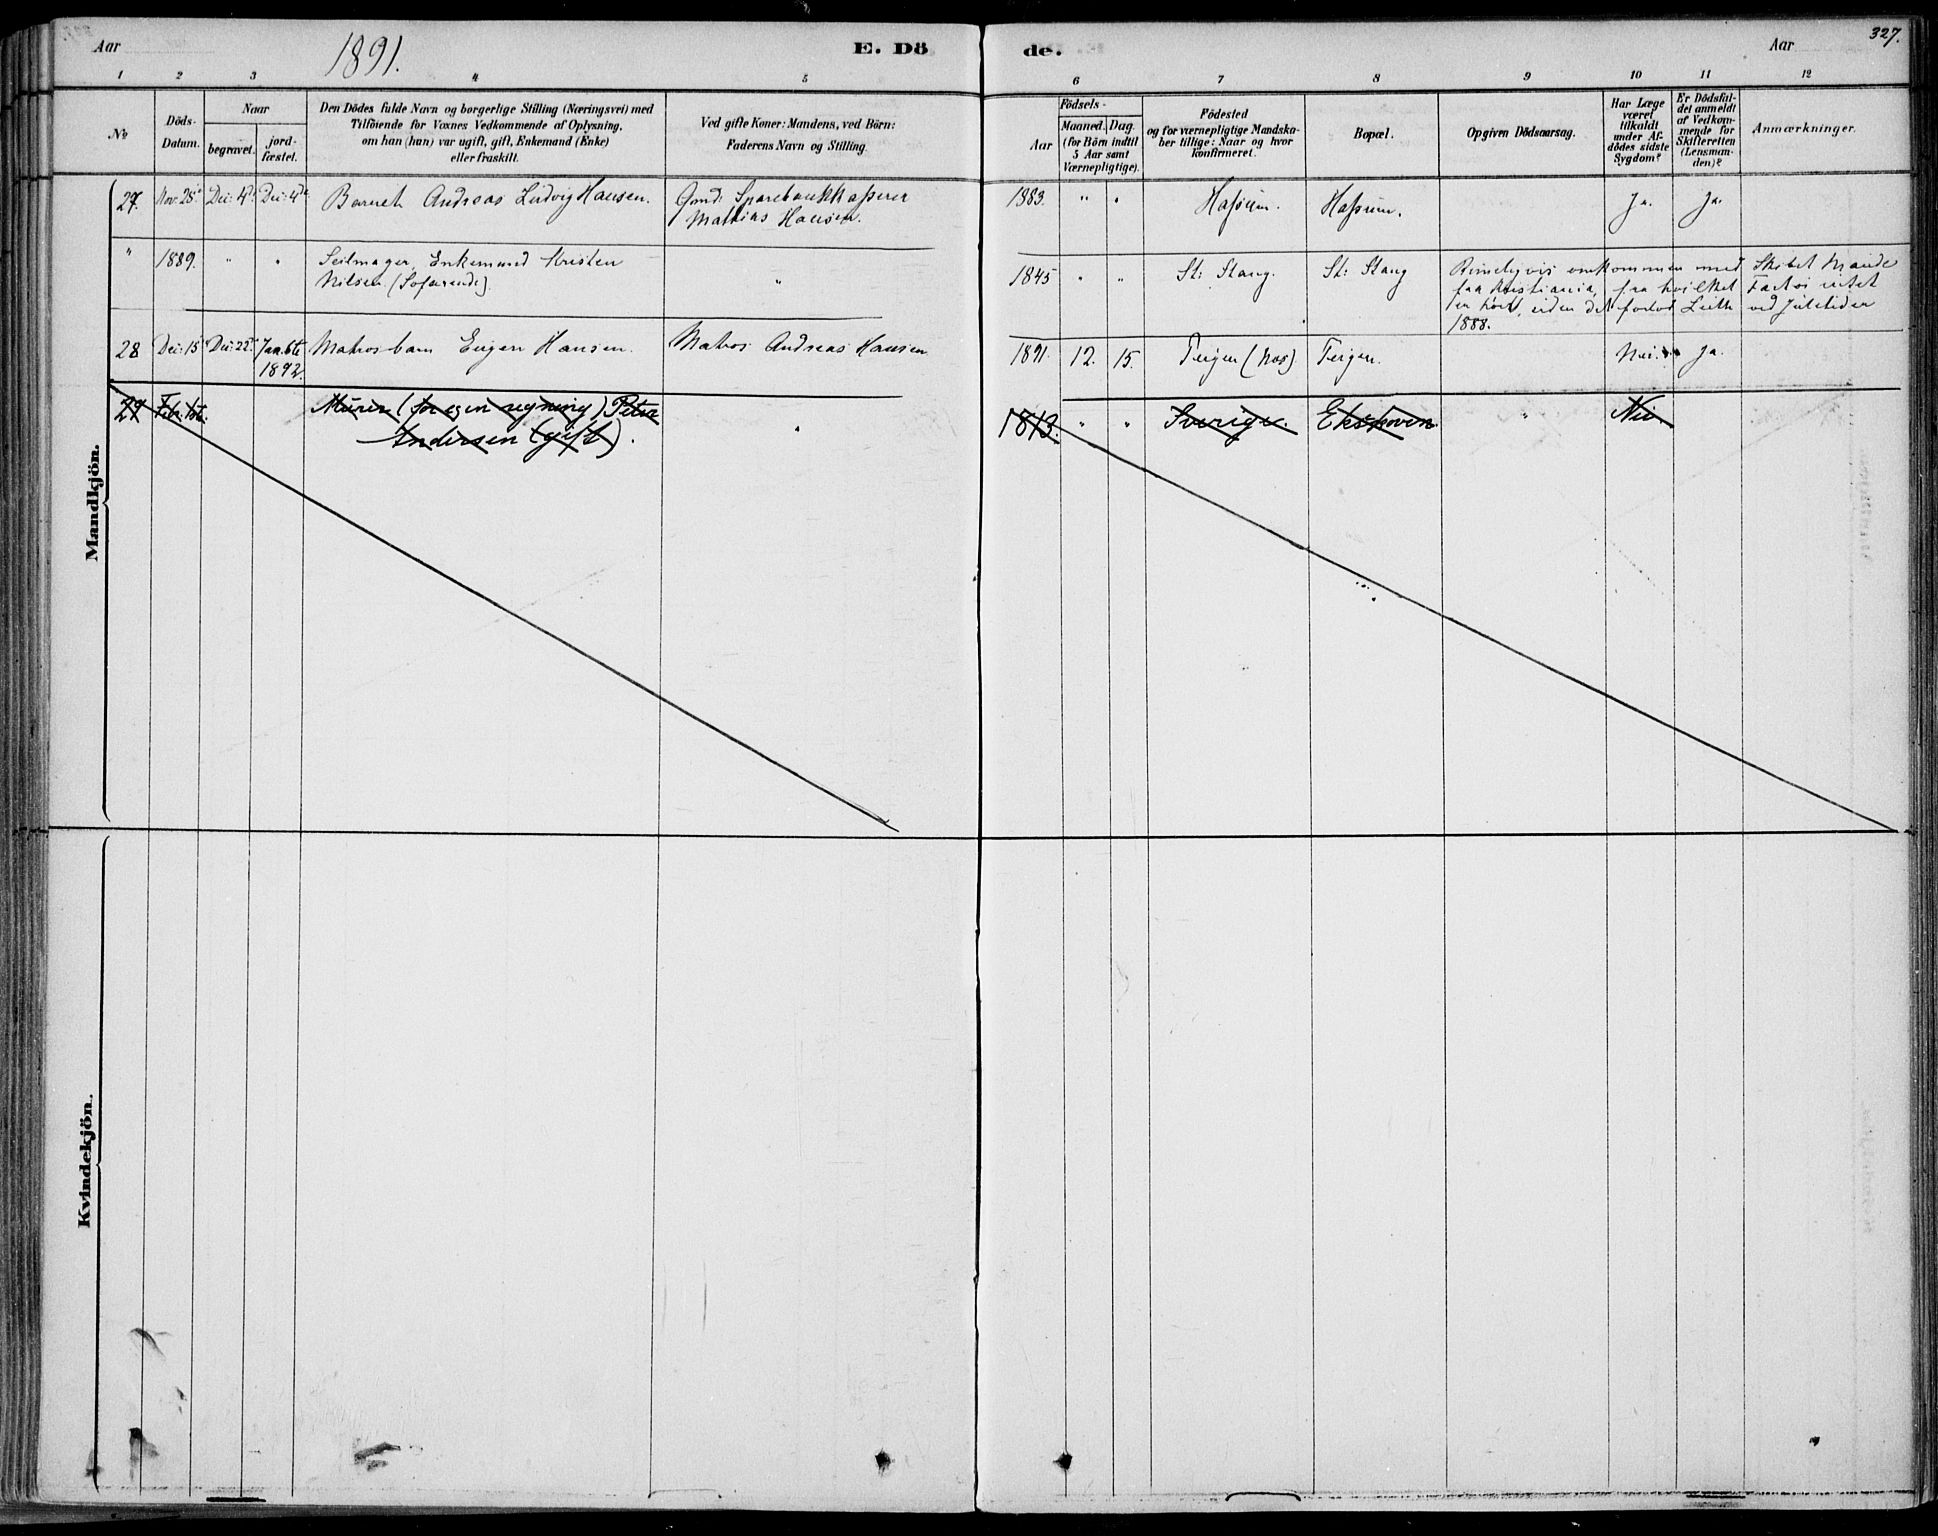 Aar 1891. E. Dö de. Aar 327.
1 2 3 4 5 6 7 8 9 10 11 12
No
Döds-
Datum.
Naar
begravet.
jord-
fæstet.
Den Dödes fulde Navn og borgerlige Stilling (Næringsvei) med
Tilföiende for Voxnes Vedkommende af Oplysning,
om han (hun) var ugift, gift, Enkemand (Enke)
eller fraskilt.
Ved gifte Koner: Mandens, ved Börn:
Faderens Navn og Stilling
Födsels-
Aar
Maaned. Dag.
(for Börn indtil
5 Aar samt
Værnepligtige).
Födested
og for værnepligtige Mandska-
ber tillige: Naar og hvor
konfirmeret.
Bopæl.
Opgiven Dödsaarsag.
Har Læge
været
tilkaldt
under Af-
dödes sidste
Sygdom?
Er Dödsfal-
det anmeldt
af Vedkom-
mende for
Skifteretten
(Lensman-
den)?
Anmærkninger.
Mandkjön.
27. Nov: 28. Dec: 4de Dec: 4de Barnet Andreas Ludvig Hansen. Gmd: Sparebankkasserer 1883. " " Hassum. Hassum. Ja. Ja.
Mathias Hansen.
" 1889. " " Seilmager, Enkemand Kristen " 1845 " " St: Stang. St: Stang
Nilsen (Söfarende)
omkommen med Skibet
fra Kristiania, fra hvilket intet
er hört, siden det forlod Leith ved Juletider
1888.
28 Dec: 15 Dec: 22 Jan. 6te Matros barn Eugen Hansen. Matros Andreas Hansen 1891. 12. 15. Terjen (Næs) Terjen. Nei. Ja.
1892.
29 Febr. Murer (for egen regning) Petter " 1813. " " Sverige. Ekshoven " Nei.
Andersen (gift).
Kvindekjön.